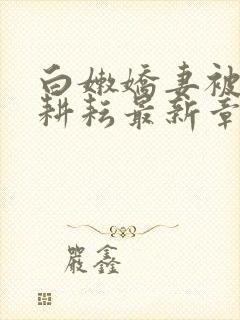 白嫩嬌妻被
耕耘最新章
嚴鑫